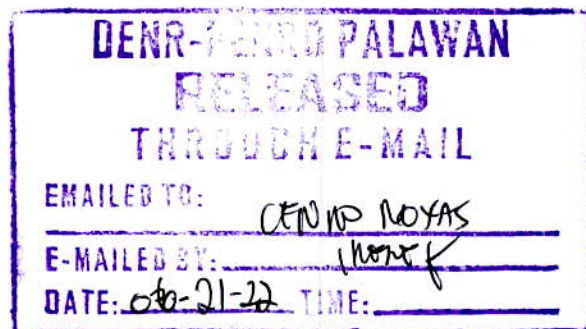 DENR-PENRO PALAWAN
RELEASED
THROUGH E-MAIL
EMAILED TO:
CENRO ROXAS
E-MAILED BY:
DATE: 06-21-22 TIME: